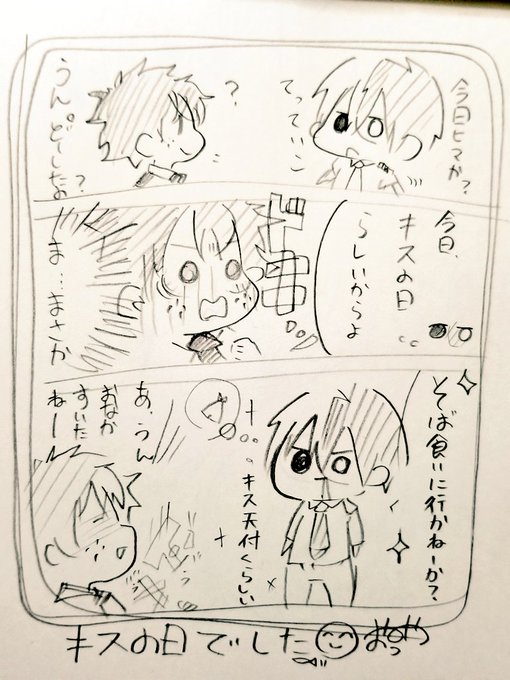 今日ヒマか?
?
うん。どーしたの?
今日、
キスの日
らしいからよ
ま…まさか
そば食いに行かねーか?
キス天付くらしい
あ、うん
おなか
すいた
ねー
キスの日でした